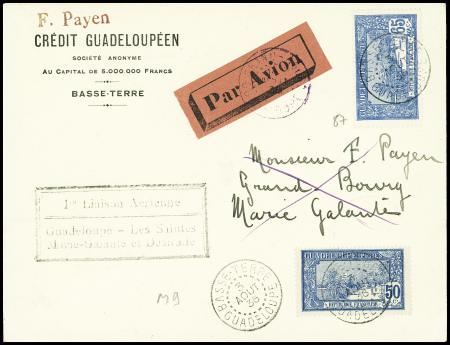 F. Payen
CRÉDIT GUADELOUPÉEN
SOCIÉTÉ ANONYME
AU CAPITAL DE 5.000.000 FRANCS
BASSE-TERRE
Par Avion
65
GUADELOUPE
87
Monsieur F. Payen
Grand Bourg
Marie Galante
1re Liaison Aérienne
Guadeloupe - Les Saintes
Marie-Galante et Désirade
M9
BASSE-TERRE
3
AOUT
GUADELOUPE
GUADELOUPE
50